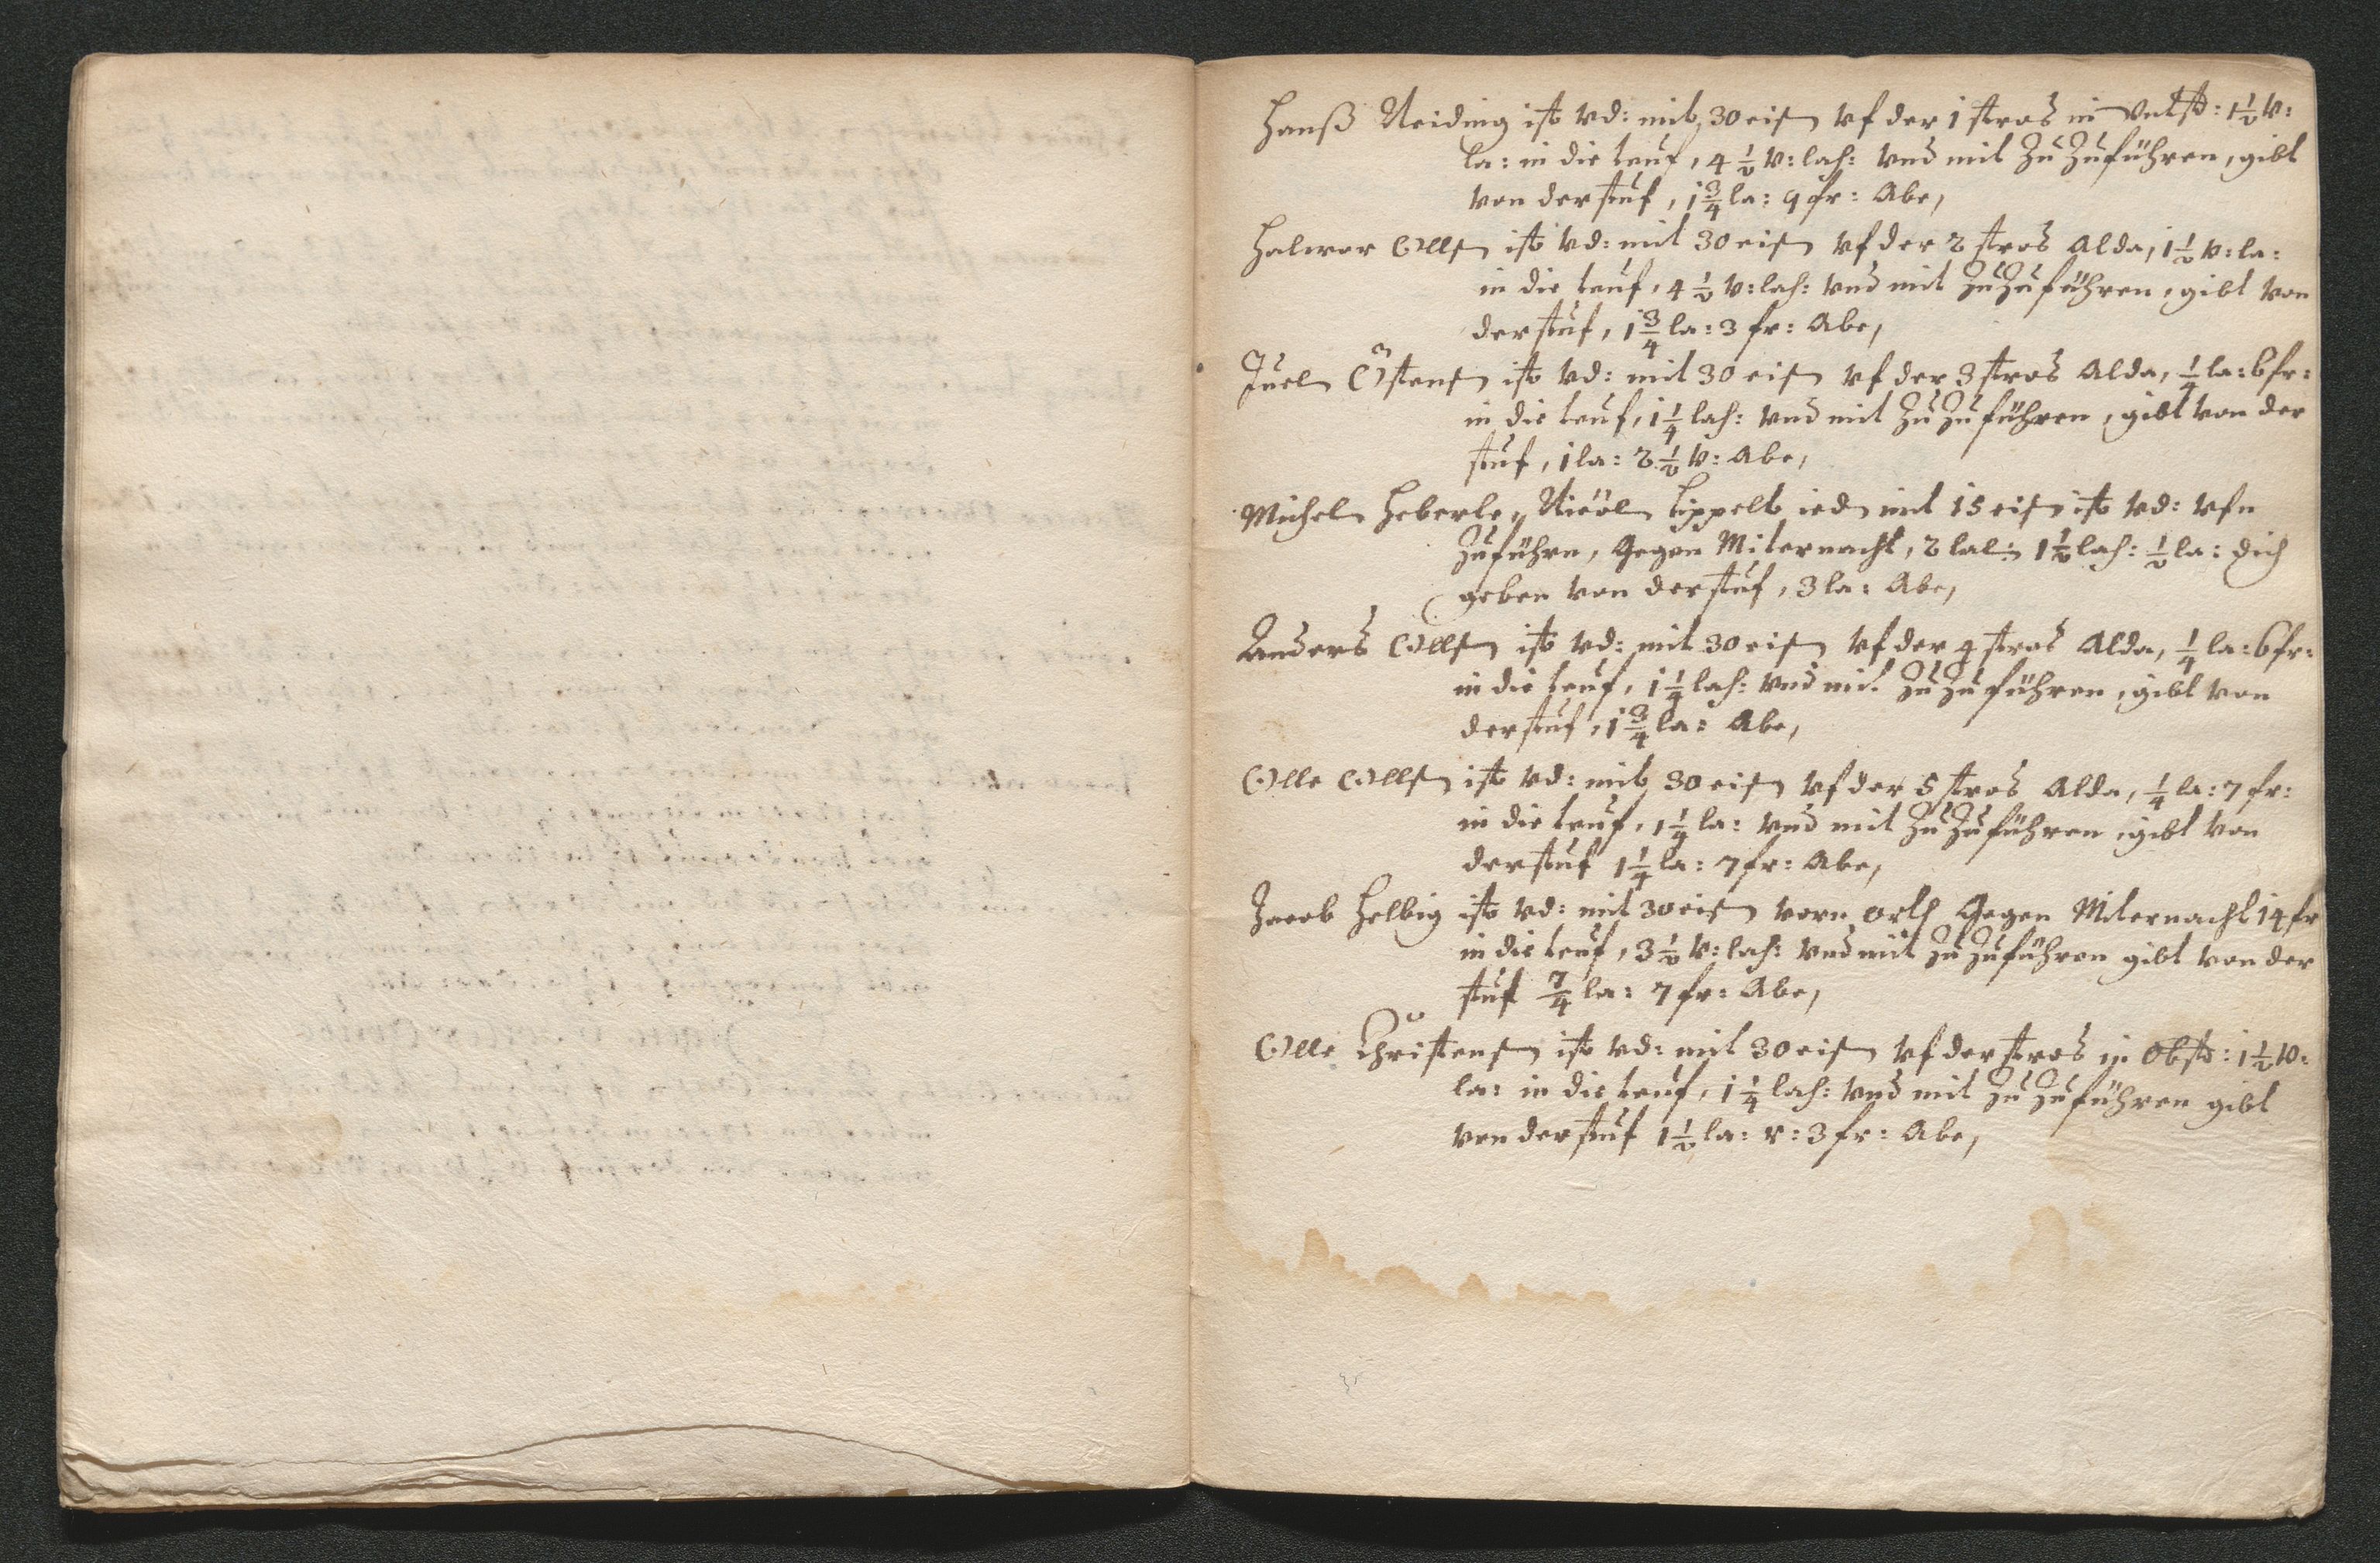 Hanß Neiding ist vd: mit 30 eisn vf der 1 stros in Vntst: 1½ v:
la: in die teuf, 4½ v: lach: vnd mit zu Zuführen, gibt
von der stuf, 1¾ la: 9 fr: Abe,
Halvor Ollsn ist vd: mit 30 eisn vf der 2 stros Alda, 1½ v: la:
in die teuf, 4½ v: lach: vnd mit zu Zuführen, gibt von
der stuf, 1¾ la: 3 fr: Abe,
Juel Östensn ist vd: mit 30 eisn vf der 3 stros Alda, ¼ la: 6 fr:
in die teuf, 1¼ lach: vnd mit zu Zuführen, gibt von der
stuf, 1 la: 2½ v: Abe,
Michel Heberle, Nicol Lippelt ied mit 15 eisn ist vd: vfn
Zuführn, Gegen Miternacht, 2 lal: 1½ lach: ½ la: dich
geben von der stuf, 3 la: Abe,
Anders Ollsn ist vd: mit 30 eisn vf der 4 stros Alda, ¼ la: 6 fr:
in die teuf, 1¼ lach: vnd mit zu Zuführen, gibt von
der stuf, 1¾ la: Abe,
Olle Ollsn ist vd: mit 30 eisn vf der 5 stros Alda, ¼ la: 7 fr:
in die teuf, 1¼ la: vnd mit zu Zuführen, gibt von
der stuf 1¼ la: 7 fr: Abe,
Jacob Helbig ist vd: mit 30 eisn vorn orth Gegen Miternacht 14 fr
in die teuf, 3½ v: lach: vnd mit zu Zuführen gibt von der
stuf 7/4 la: 7 fr: Abe,
Olle Christensn ist vd: mit 30 eisn vf der stros in Obst: 1½ v:
la: in die teuf, 1¼ lach: vnd mit zu Zuführen gibt
von der stuf 1½ la: v: 3 fr: Abe,